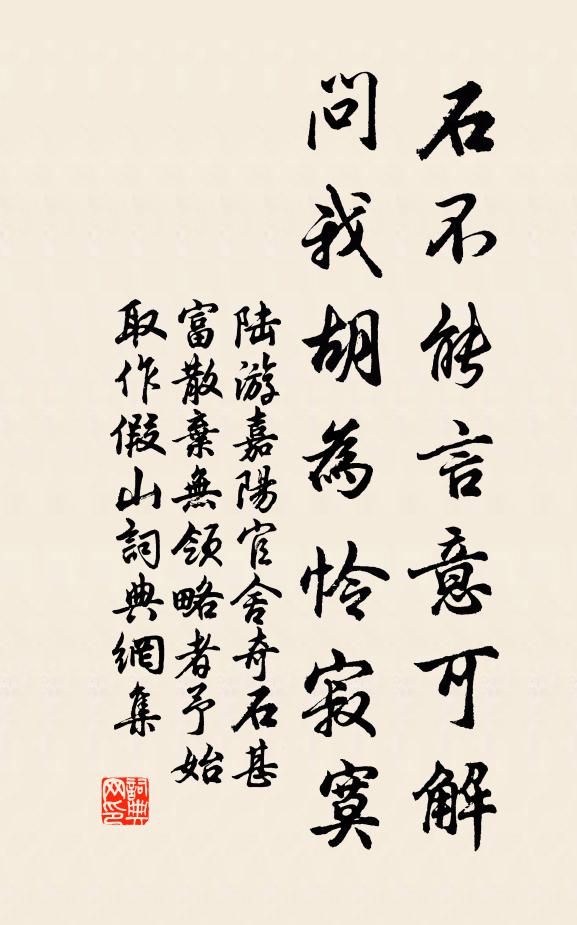 石不能言意可解
問我胡為怜寂寞
陆游嘉陽官舍奇石甚
富散棄無領略者予始
取作假山詞典網集
詞典網印